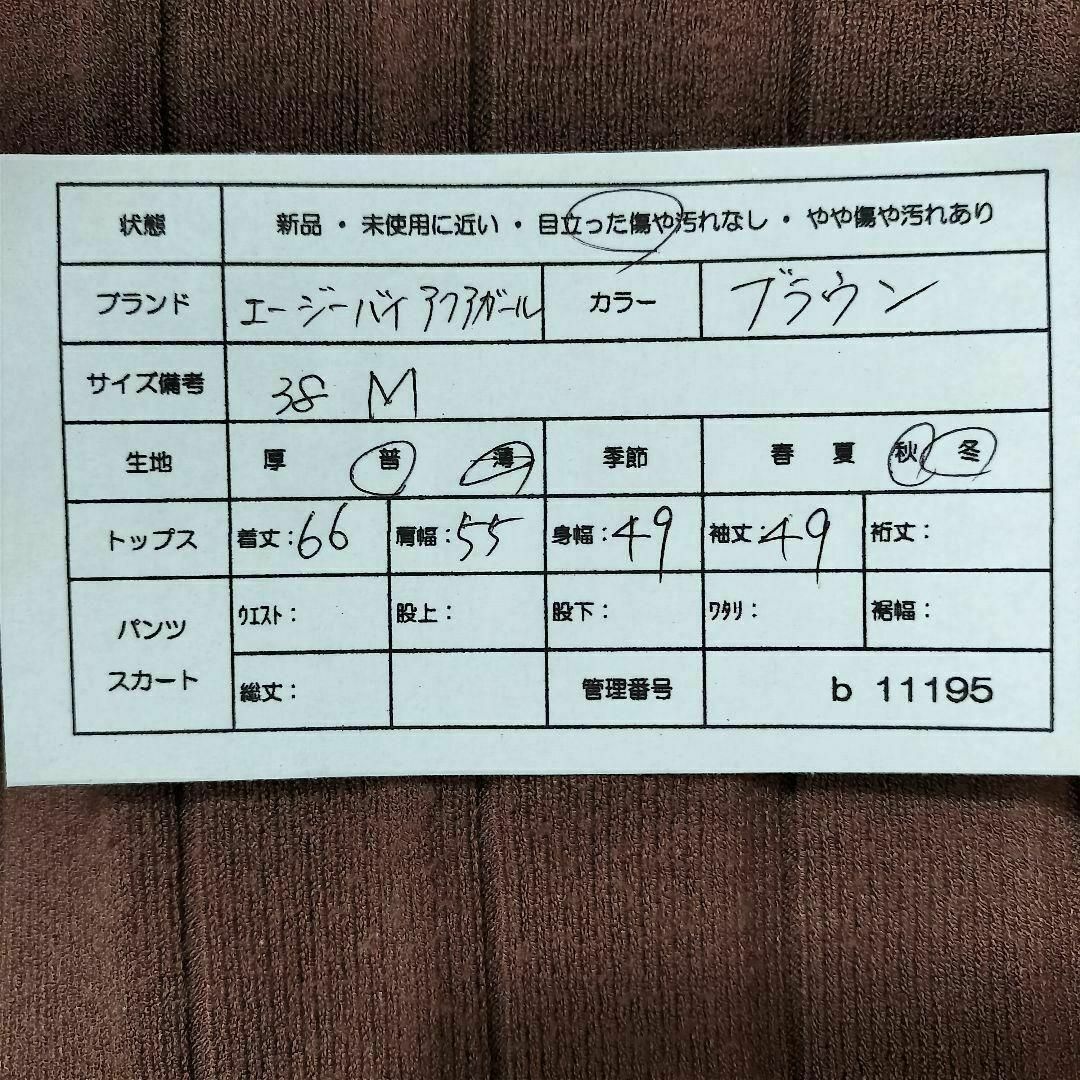 状態 新品 ・ 未使用に近い ・ 目立った傷や汚れなし ・ やや傷や汚れあり
ブランド エージーバイアクアガール カラー ブラウン
サイズ備考 38 M
生地 厚 普 薄 季節 春 夏 秋 冬
トップス 着丈:66 肩幅:55 身幅:49 袖丈:49 裄丈:
パンツ スカート ウエスト: 股上: 股下: ワタリ: 裾幅:
総丈: 管理番号 b 11195